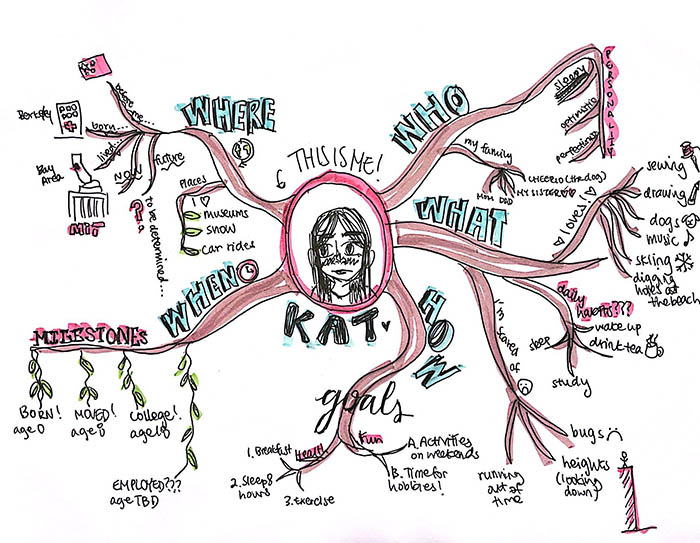 WHERE
before me...
born...
Berkeley
lived...
Bay
Area
NOW
MIT
future
?
to be determined...
Places
I ♡
museums
snow
car rides
THIS IS ME!
KAT
WHO
PERSONALITY
sloppy
optimistic
perfectionist
my family
CHEERIO (the dog)
MY SISTER
MOM DAD
WHAT
I love!
sewing
drawing
dogs
music
skiing
digging
holes at
the beach
daily habits???
wake up
drink tea
sleep
study
I'm scared of
bugs
heights
(looking
down)
running
out of
time
HOW
goals
Health
1. Breakfast
2. Sleep 8
hours
3. Exercise
Fun
A. Activities
on weekends
B. Time for
hobbies!
WHEN
MILESTONES
BORN!
age 0
MOVED!
age
college!
age 18
EMPLOYED???
age TBD